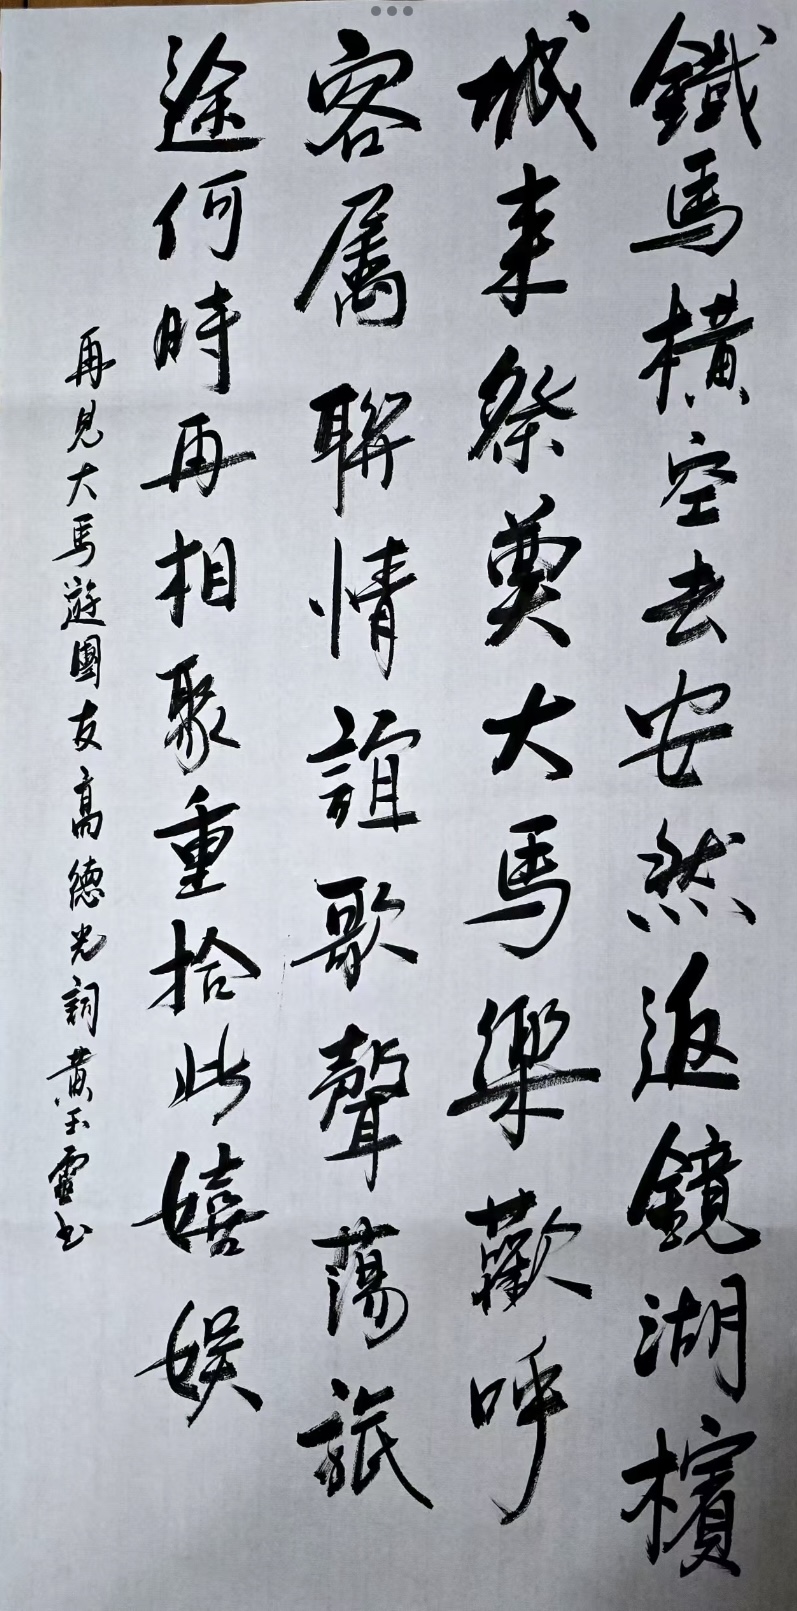 鐵馬橫空去安然返鏡湖檳
城来祭奠大馬樂歡呼
客属聯情誼歌聲蕩旅
途何時再相聚重拾此嬉娱
再見大馬遊團友高德光詞黄玉靈书